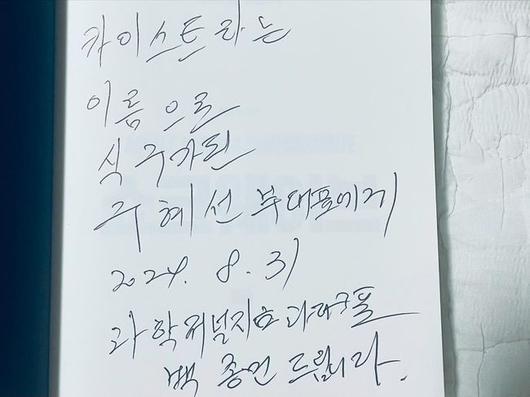 카이스트라는
이름으로
식구가된
구혜선 부대표에게
2024. 8. 31
과학저널리즘 대학원
드립니다.